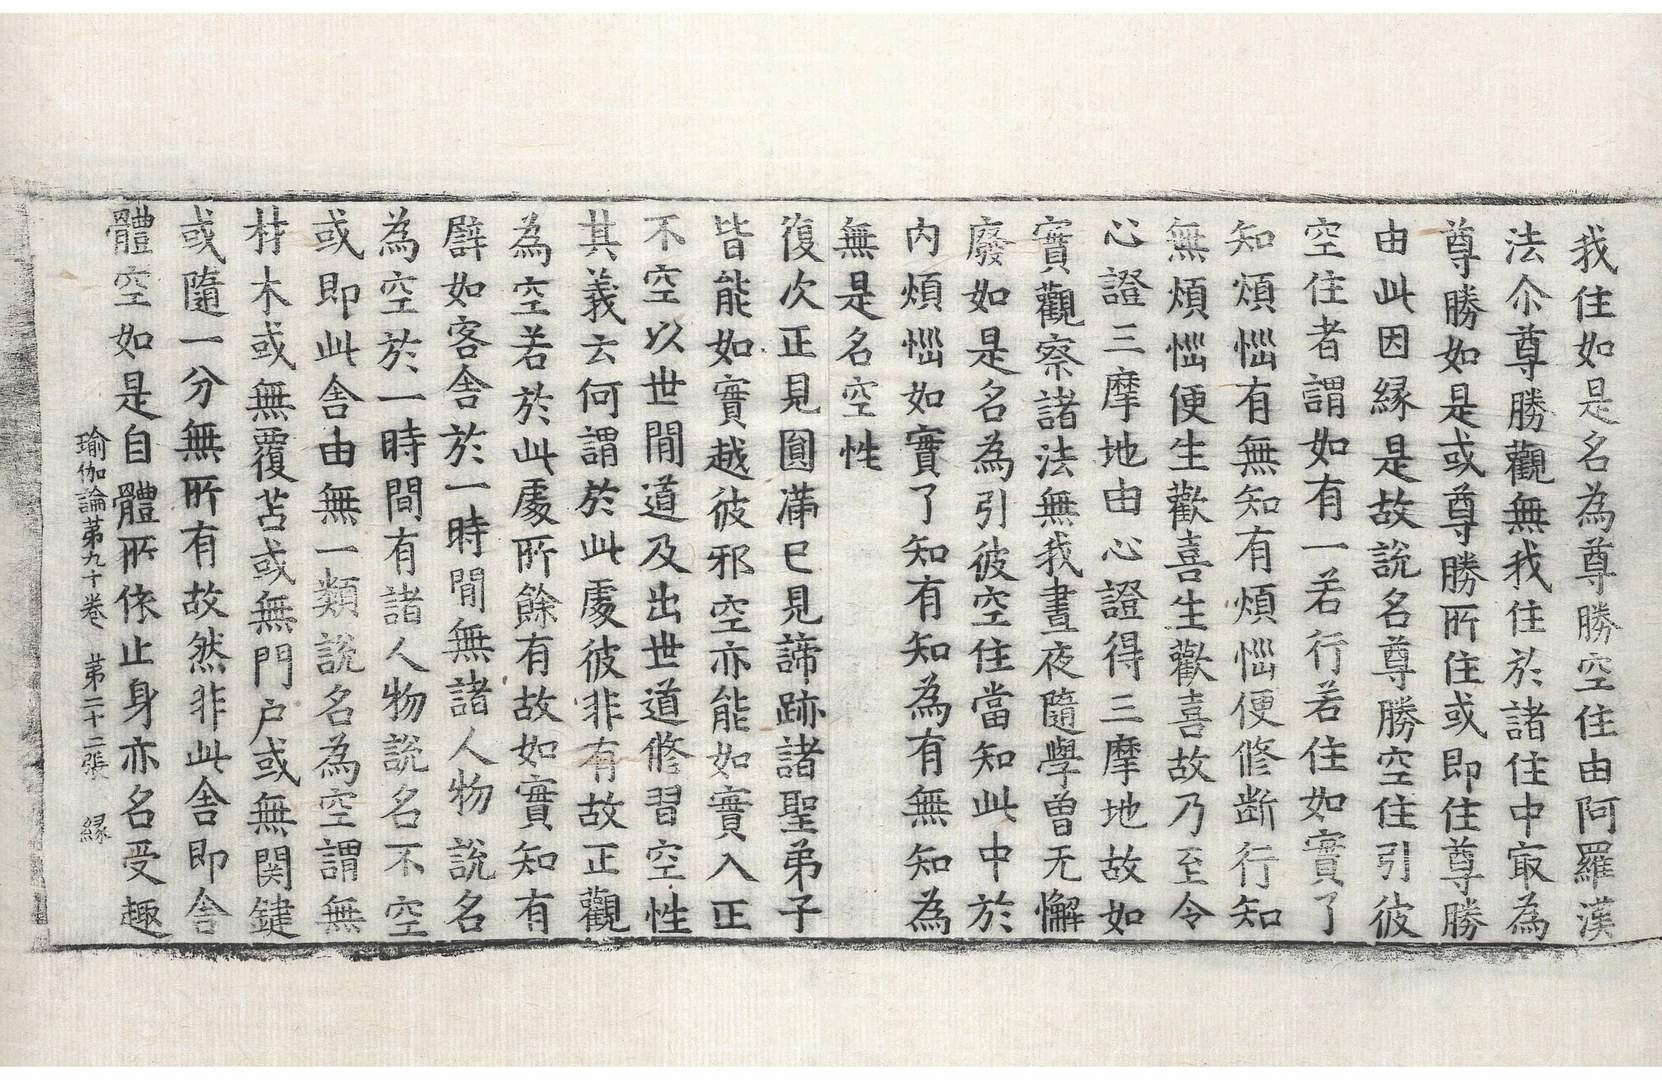 我住如是名為尊勝空住由阿羅漢
法尒尊勝觀無我住於諸住中㝡為
尊勝如是或尊勝所住或即住尊勝
由此因縁是故說名尊勝空住引彼
空住者謂如有一若行若住如實了
知煩惱有無知有煩惱便修斷行知
無煩惱便生歡喜生歡喜故乃至令
心證三摩地由心證得三摩地故如
實觀察諸法無我晝夜隨學曽无懈
廢如是名為引彼空住當知此中於
内煩惱如實了知有知為有無知為
無是名空性
復次正見圓滿已見諦跡諸聖弟子
皆能如實越彼邪空亦能如實入正
不空以世間道及出世道修習空性
其義云何謂於此處彼非有故正觀
為空若於此處所餘有故如實知有
譬如客舍於一時間無諸人物說名
為空於一時間有諸人物說名不空
或即此舍由無一類說名為空謂無
材木或無覆苫或無門户或無関鍵
或隨一分無所有故然非此舍即舍
體空如是自體所依止身亦名受趣
瑜伽論第九十卷 第二十二張 縁